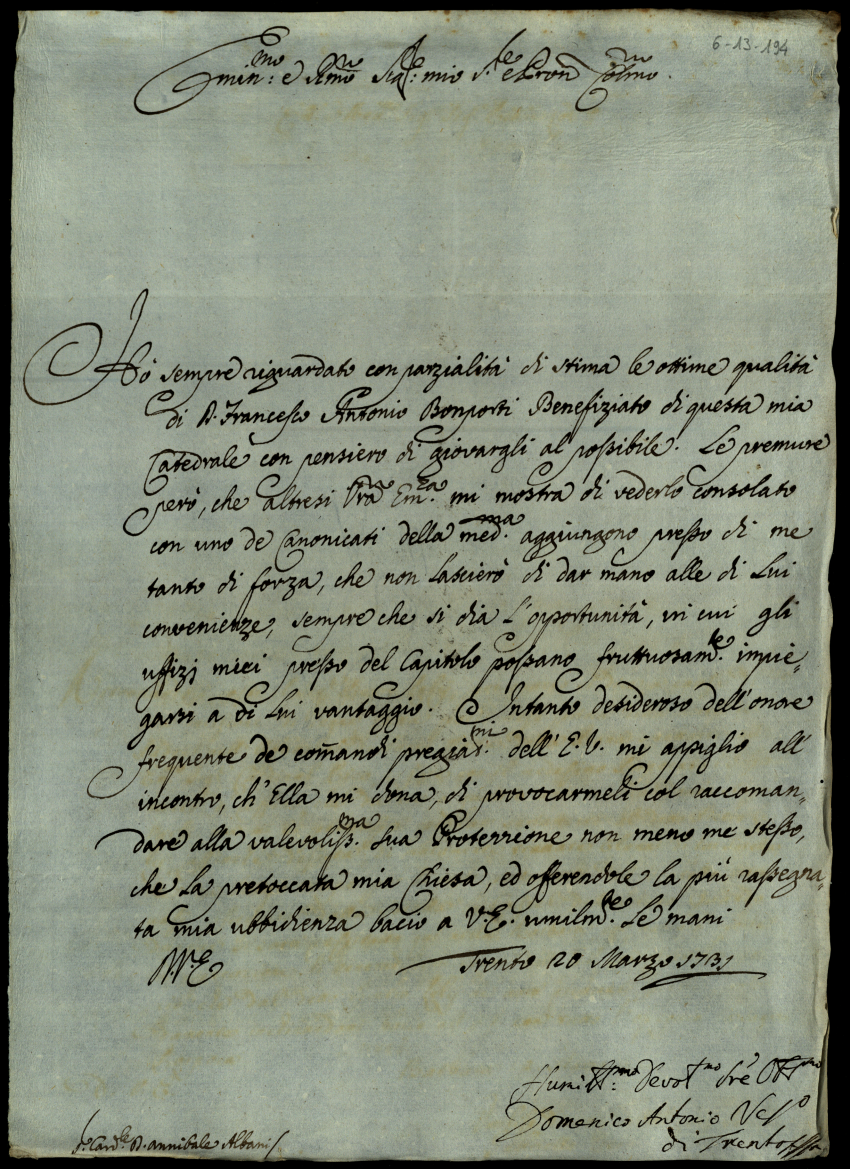 6-13-194
Emin:mo e Rmo Sig:re mio S.re e Pron Colmo.
Hò sempre riguardato con parzialità di stima le ottime qualità
di D. Francesco Antonio Bonporti Benefiziato di questa mia
Catedrale con pensiero di giovargli al possibile. Le premure
però, che altresi Vra Em.za mi mostra di vederlo consolato
con uno de Canonicati della med.ma aggiungono presso di me
tanto di forza, che non lascierò di dar mano alle di Lui
convenienze, sempre che si dia l'opportunità, in cui gli
uffizj miei presso del Capitolo possano fruttuosam.te impie„
garsi a di Lui vantaggio. Intanto desideroso dell'onore
frequente de comandi pregia.mi dell'E.V. mi appiglio all'
incontro, ch'Ella mi dona, di provocarmeli col raccoman„
dare alla valevoliss.ma sua Protezzione non meno me stesso,
che la pretoccata mia Chiesa, ed offerendole la più rassegna„
ta mia ubbidienza bacio a V.E. umilm.te le mani
D.V.E. Trento 20 Marzo 1731
Humill:mo Devot.mo Sre Obb.mo
Domenico Antonio Ves.o
di Trento
S.r Card.le D. Annibale Albani